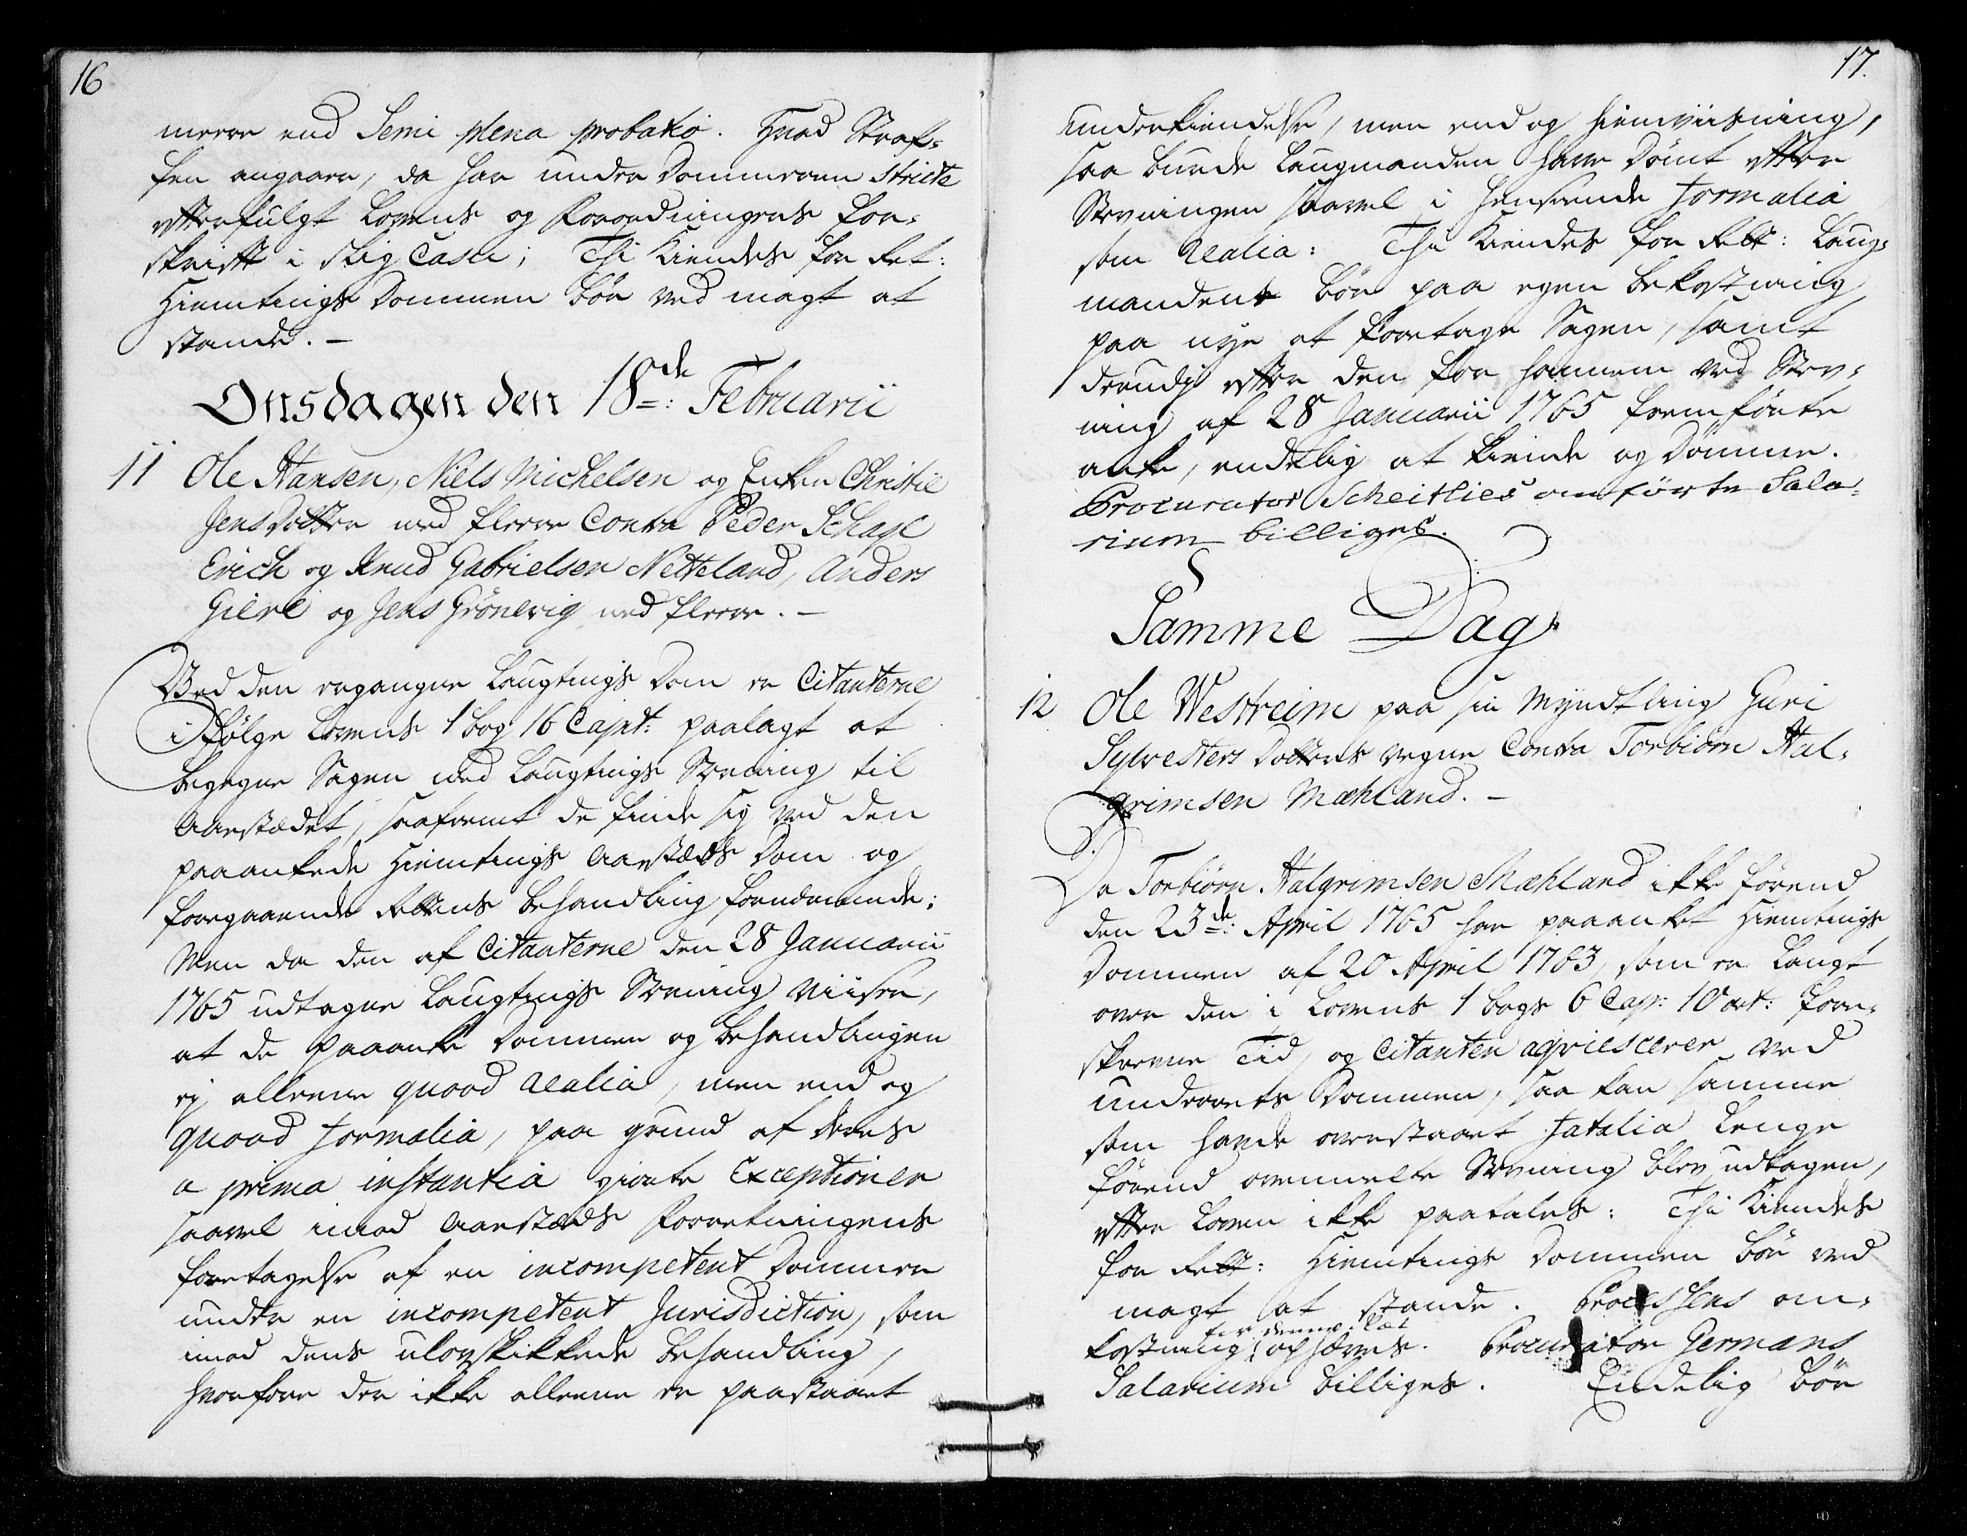 16
meere end Semi plena probatio. Hvad Straf-
fen angaaer, da har under Dommeren Stricte
efterfulgt Lovens og Forordningens for-
skrift i slig Casu; Thi Kiendes for Ret:
Hiemtings Dommen bør ved magt at
stande. —
Onsdagen den 18de: Februarii
11 Ole Hansen, Niels Michelsen og Enken Christie
Jens Dotter med fleere Contra Peder Schage
Erich og Knud Gabrielsen Netteland, Anders
Giere og Jens Grönevig med fleere. —
Ved den ergangne Laugtings Dom er Citanterne
i Følge Lovens 1 bog 16 Capt: paalagt at
begegne Sagen med Laugtings Stevning til
Aarstædet, saafremt de finde sig ved den
paaankede Hiemtings Aarstæds Dom og
foregaaende Rettens Behandling fornærmede;
Men da den af Citanterne den 28 Januarii
1765 udtagne Laugtings Stevning viiser,
at de paaanke Dommen og Behandlingen
ej alleene quoad realia, men end og
quoad formalia, paa grund af deres
a prima instantia giorte Exceptioner
saavel imod Aarstæds Forretningens
foretagelse af en incompetent Dommer
under en incompetent Jurisdiction, som
imod dens ulovskikkede Behandling,
hvorfore der ikke alleene er paastaaet
17.
underkiendelse, men end og hiemviisning,
saa burde Laugmanden have Dømt efter
Stevningen saavel i henseende formalia
som realia: Thi Kiendes for Rett: Laug-
manden bør paa egen bekostning
paa nye at foretage Sagen, samt
derudj efter den for hannem ved Stev-
ning af 28 Januarii 1765 fremførte
anke, endelig at kiende og Dømme.
Procurator Scheitlies anførte Sala-
rium billiges.
Samme Dag
12 Ole Westreim paa sin Myndtling Guri
Sylvesters Dotters vegne Contra Torbiörn Hal-
grimsen Mæhland. —
Da Torbiörn Halgrimsen Mæhland ikke förend
den 23de: April 1765 har paaanket Hiemtings
Dommen af 20 April 1763, som er langt
over den i Lovens 1 bogs 6 Cap: 10 art: fore-
skrevne Tid, og Citanten acqviescerer ved
underrets Dommen, saa kan samme
som havde overstaaet fatalia lenge
förend ommelte Stevning blev udtagen,
efter Loven ikke paatales: Thi Kiendes
for Rett: Hiemtings Dommen bør ved
magt at stande. Processens om-
for denne Ræt
kostning ophæves. Procurator Germans
Salarium billiges. Endelig bør